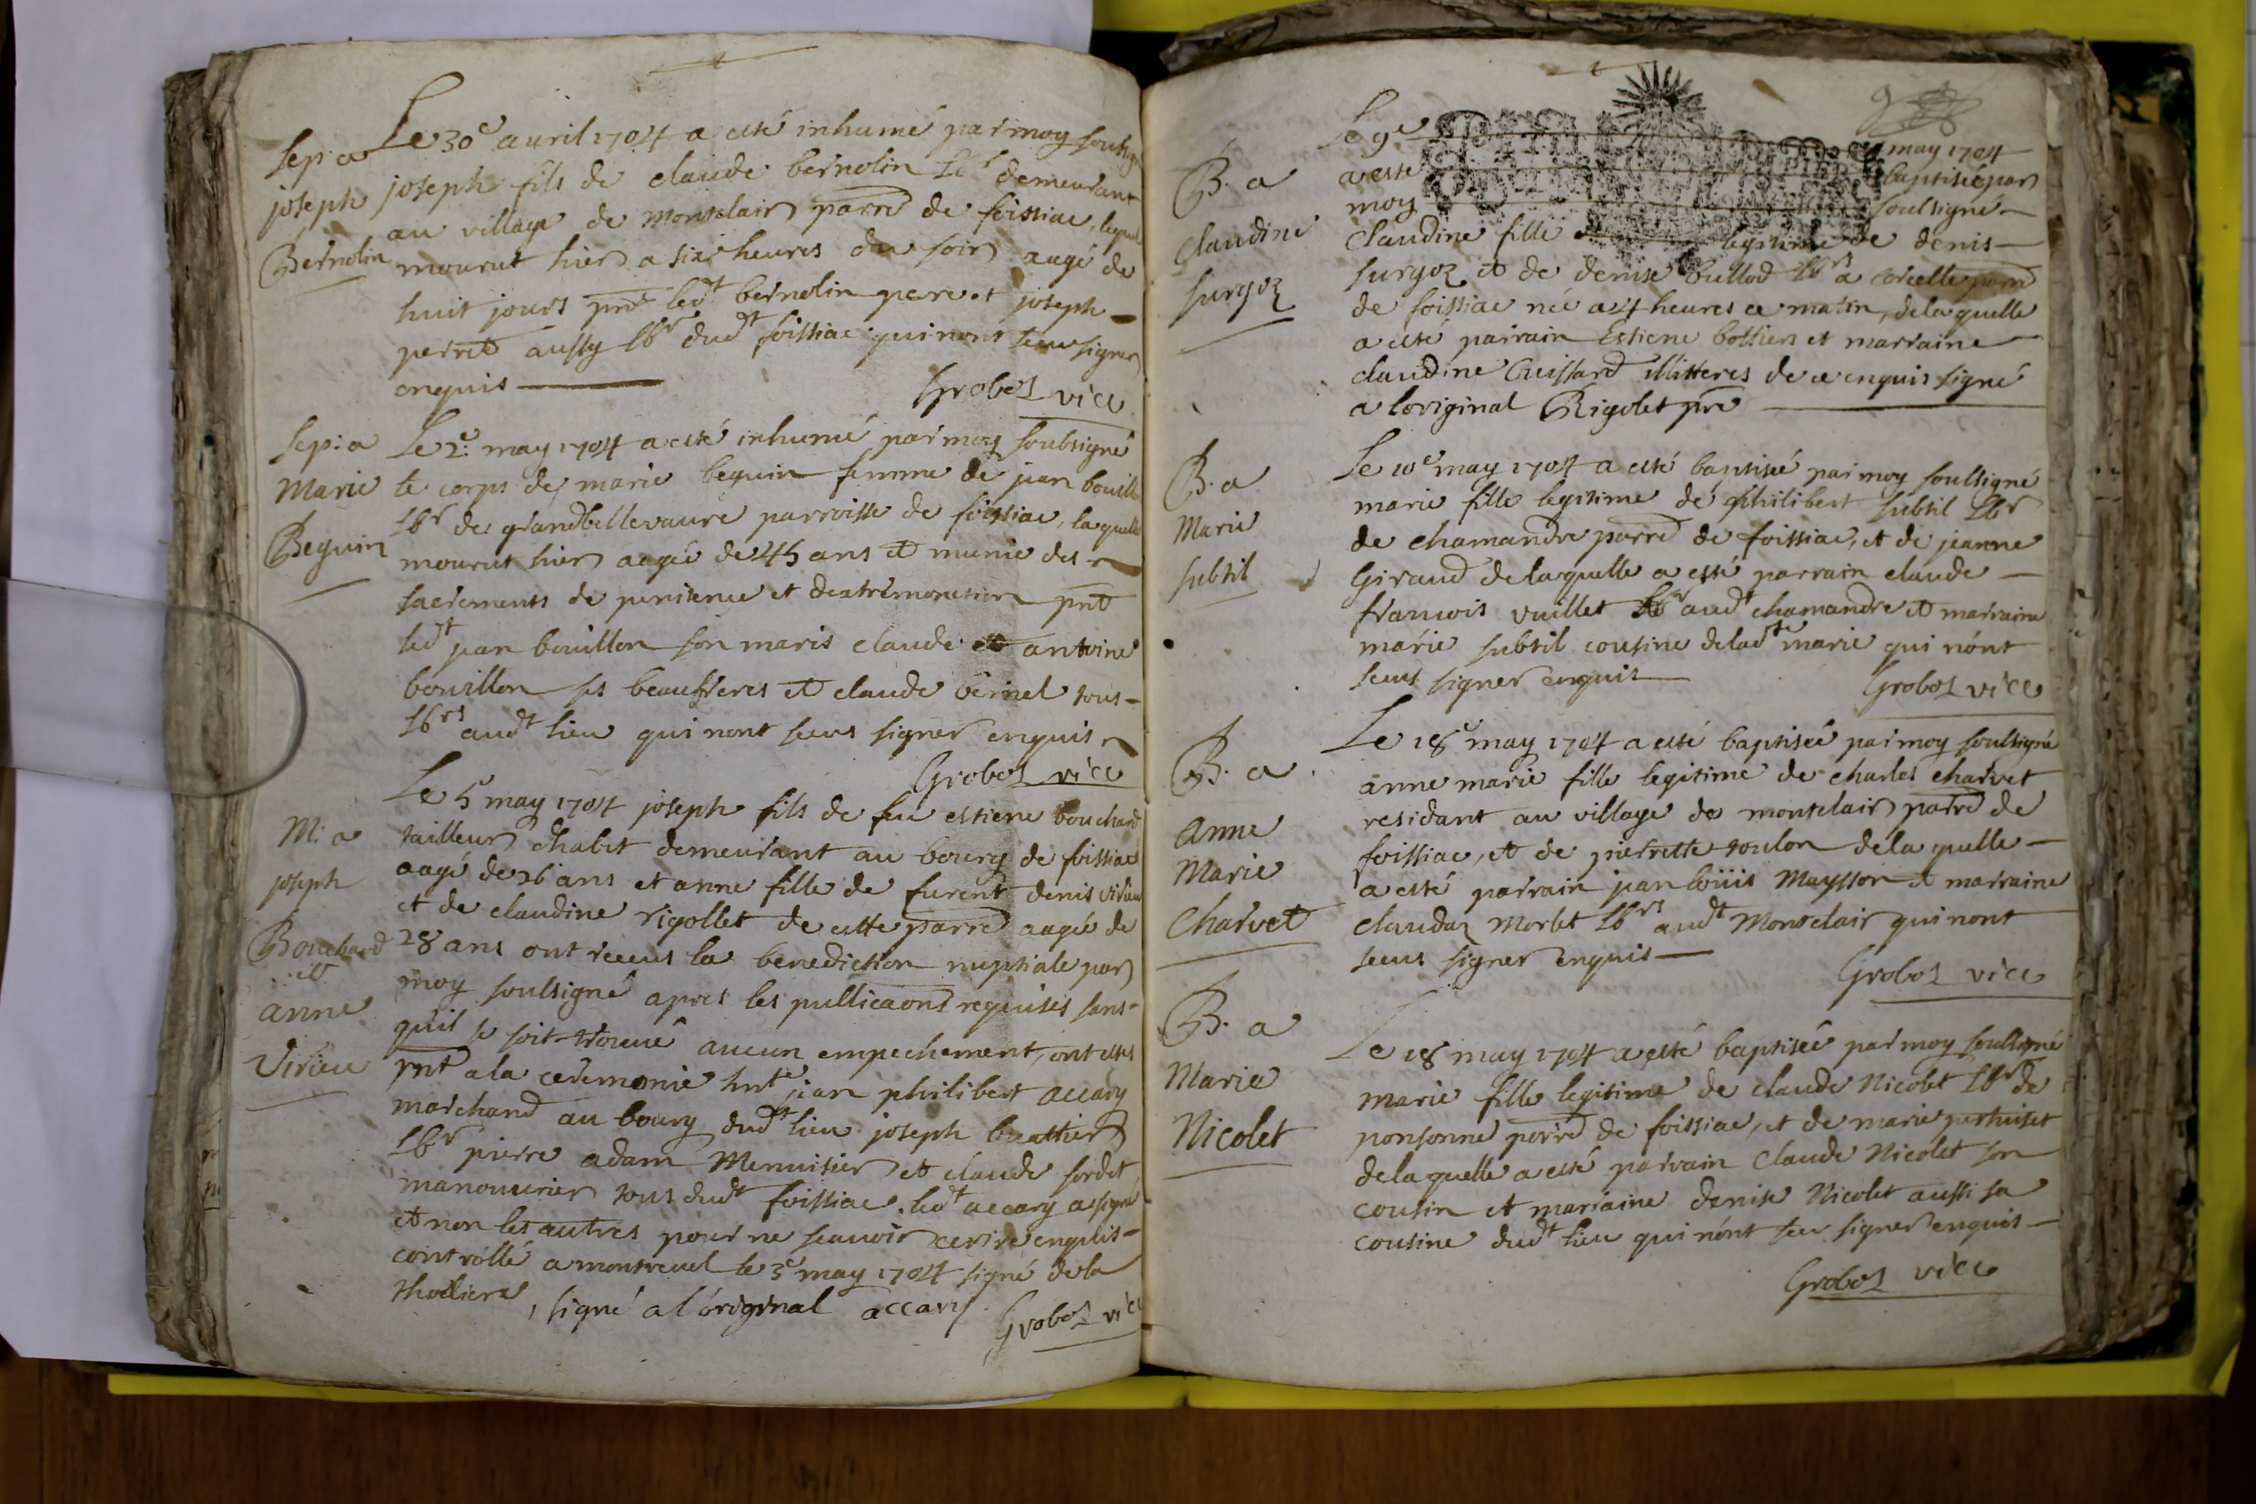 Sep. a
joseph
Bernolin
Le 30e avril 1704 a esté inhumé par moy soubsigné
joseph fils de claude bernolin Lbr demeurant
au village de montclair parre de foissiac, lequel
mourut hier a six heures du soir aagé de
huit jours pnt ledt bernolin pere et joseph
perret aussy lbr dudt foissiac qui nont sceu signer
enquis
Groboz vice
Sep: a
Marie
Beguin
Le 2e may 1704 a esté inhumé par moy soubsigné
le corps de marie beguin femme de jean bouillon
lbr de grandbellevaure parroisse de foissiac, laquelle
mourut hier aagée de 45 ans et munie des
sacrements de penitence et dextremonction pnt
ledt jean bouillon son maris claude et antoine
bouillon ses beaufreres et claude bernel tous
lbrs audt lieu qui nont sceus signer enquis
Groboz vice
M: a
joseph
Bouchard
et
anne
Virieu
Le 5 may 1704 joseph fils de feu estiene bouchard
tailleur dhabit demeurant au bourg de foissiac
aagé de 26 ans et anne fille de furent denis virieu
et de claudine rigollet de cette parre aagée de
28 ans ont receus la benediction nuptiale par
moy soulsigné apres les pullicaons requises sans
quil se soit trouvé aucun empechement, ont estes
pnt a la ceremonie hnte jean philibert accary
marchand au bourg dudt lieu joseph breathier
lbr pierre adam Menuisier et claude sordet
manouvrier tous dudt foissiac. ledt accary a signé
et non les autres pour ne scavoir ecrire enquis
controllé a montrevel le 3e may 1704 signé dela
tholiere, signé a l'original accary
Groboz vice
B. a
Claudine
surgoz
Le 9e may 1704
a esté baptisée par
moy soulsigné
Claudine fille legitime de denis
surgoz et de denise bullod lbrs a corcelle parre
de foissiac née a 4 heures ce matin, de laquelle
a esté pairain Estiene bottier et marraine
claudine Cuissard illitteres de ce enquis signé
a loriginal Rigolet pre
B. a
Marie
subtil
Le 10e may 1704 a esté baptisée par moy soulsigné
marie fille legitime de philibert subtil lbr
de chamandre parre de foissiac, et de jeanne
Giraud de laquelle a esté parrain claude
francois vuillet lbr audt chamandre et marraine
marie subtil cousine deladte marie qui nont
sceus signer enquis
Groboz vice
B. a
Anne
Marie
Charvet
Le 18e may 1704 a esté baptisée par moy soulsigné
anne marie fille legitime de charles charvet
residant au village de montclair parre de
foissiac, et de pierrette toulon de laquelle
a esté parrain jean loüis Maysson et marraine
claudaz Morlet lbrs audt Montclair qui nont
sceus signer enquis
Groboz vice
B. a
Marie
Nicolet
Le 18 may 1704 a esté baptisée par moy soulsigné
marie fille legitime de claude Nicolet lbr de
ponsonne parre de foissiac, et de marie perthuiset
de laquelle a esté parrain Claude Nicolet son
cousin et mariaine denise Nicolet aussi sa
cousine dudt lieu qui nont sceu signer enquis
Groboz vice